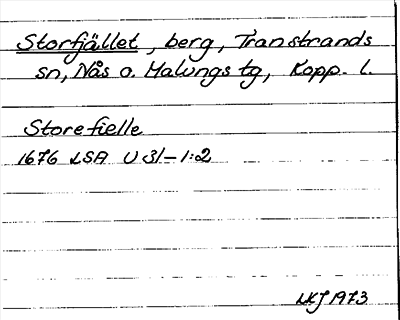 Storfjället, berg, Transtrands
sn, Nås o. Malungs tg, Kopp. l.
Storefielle
1676 LSA U 31-1:2
LKJ 1973